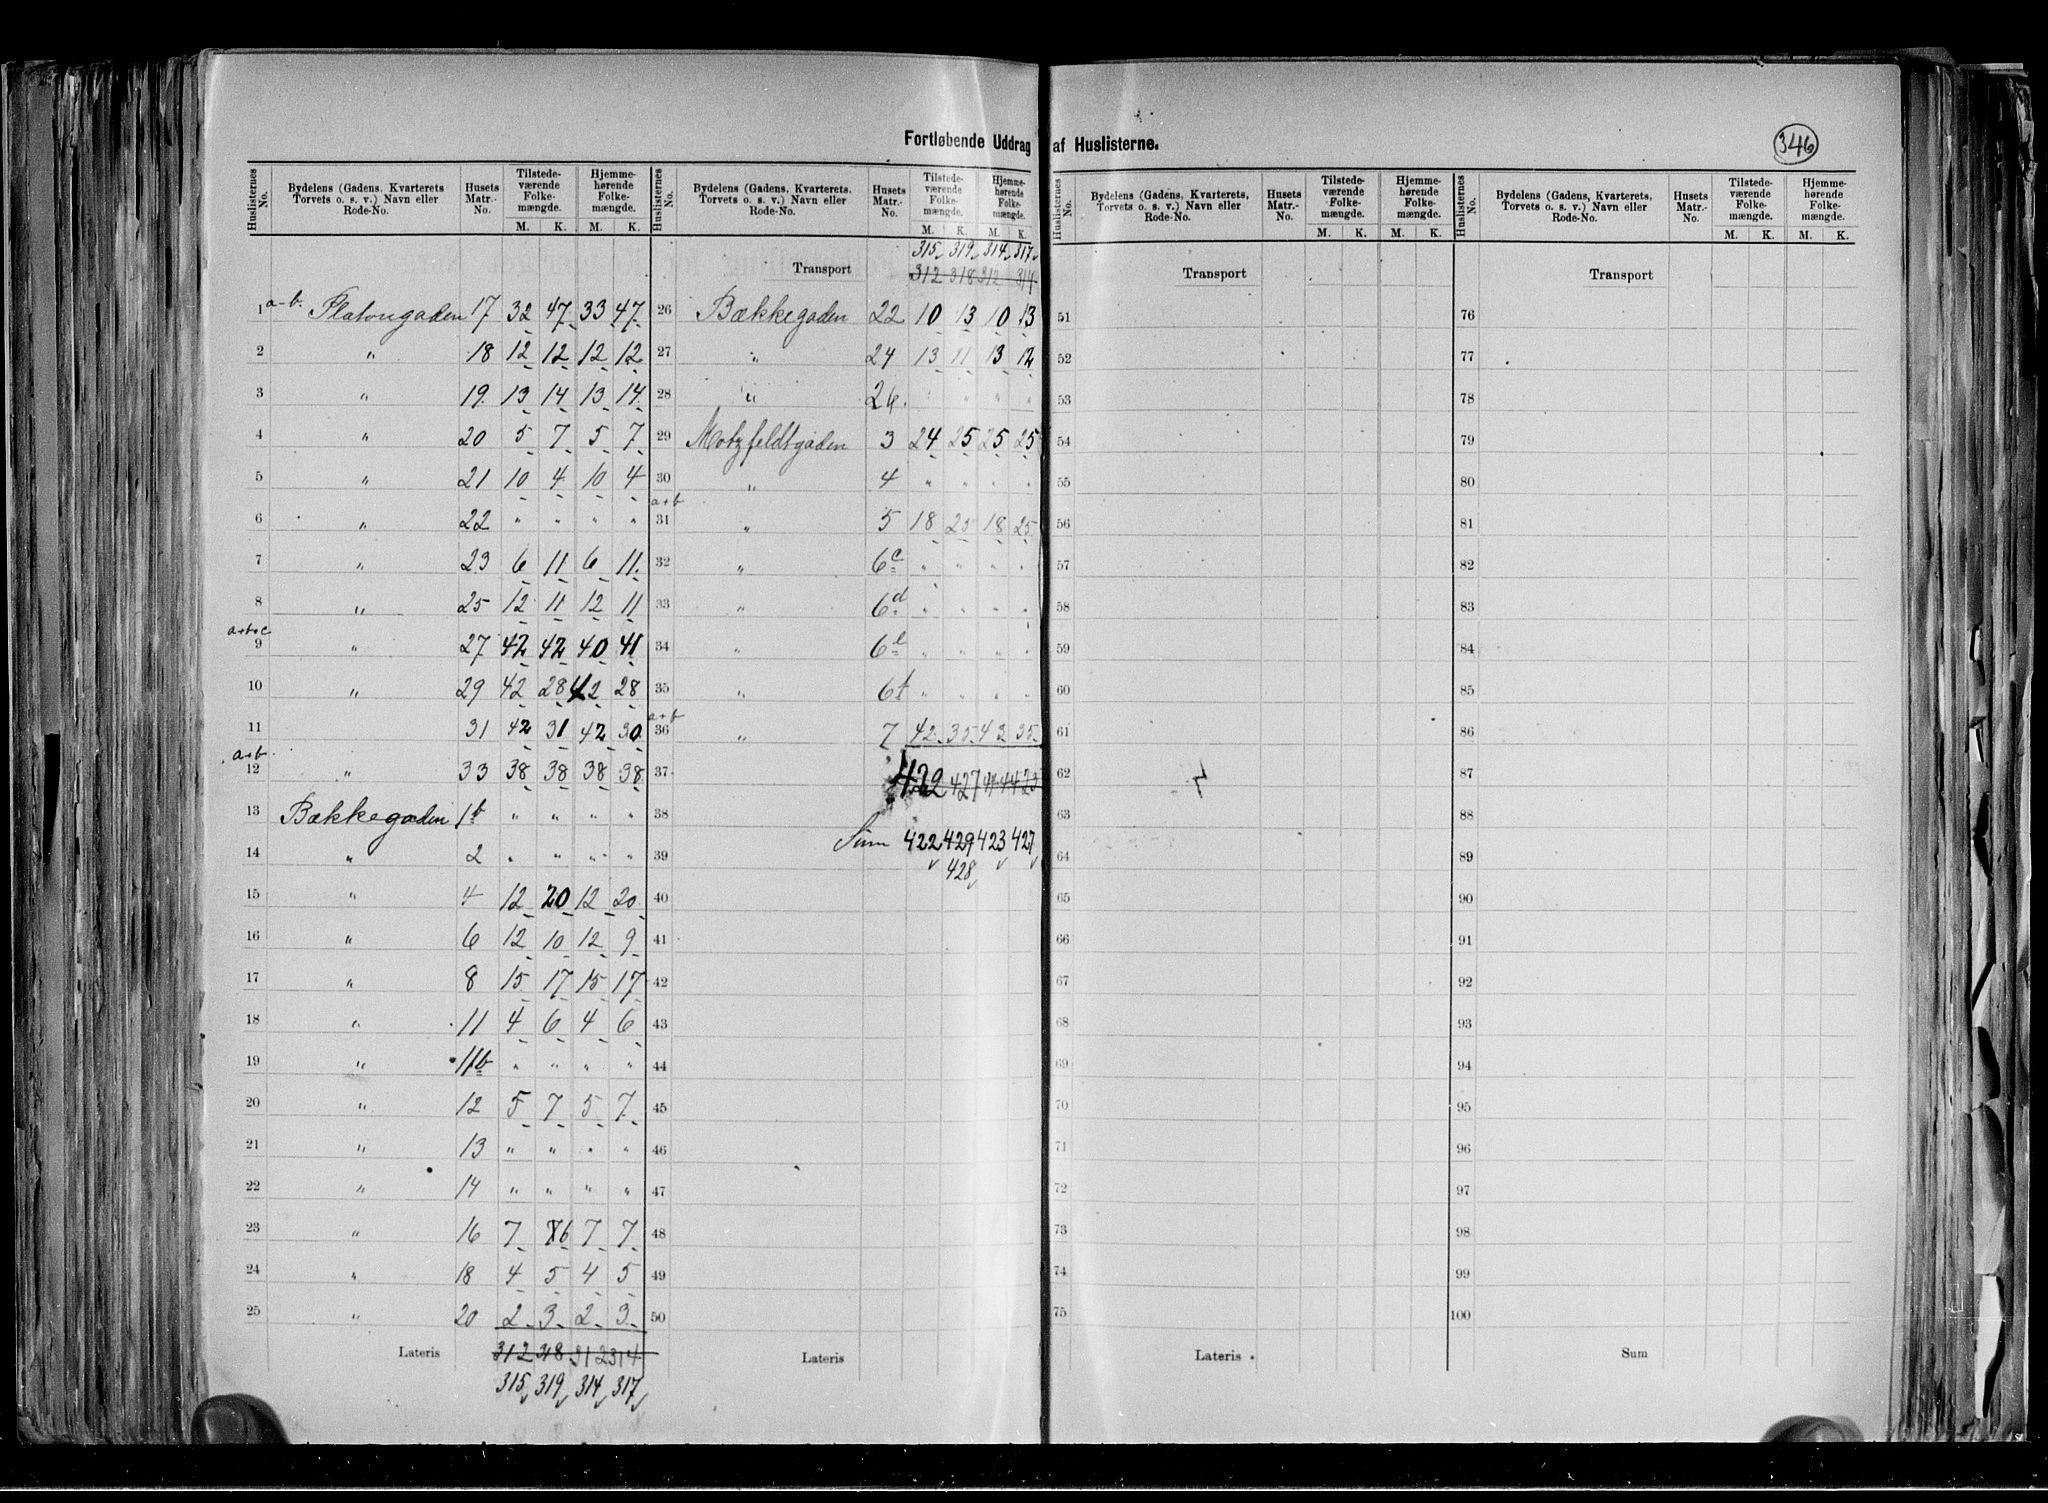 Fortløbende Uddrag af Huslisterne.
346
Huslisternes No. Bydelens (Gadens, Kvarterets Torvets o. s. v.) Navn eller Rode-No. Husets Matr.-No. Tilstede-værende Folke-mængde. M. K. Hjemme-hørende Folke-mængde. M. K.
1 a-b. Platougaden 17 32 47 33 47
2 " 18 12 12 12 12
3 " 19. 13 14 13 14
4 " 20 5 7 5 7
5 " 21 10 4 10 4
6 " 22 " " " "
7 " 23 6 11 6 11
8 " 25 12 11 12 11
a+b+c
9 " 27 42 42 40 41
10 " 29 42 28 42 28
11 31 42 31 42 30
a+b
12 " 33 38 38 38 38
13 Bækkegaden 1b " " " "
14 " 2 " " " "
15 " 4 12 20 12 20
16 " 6 12 10 12 9
17 " 8 15 17 15 17
18 " 11 4 6 4 6
19 " 11b " " " "
20 " 12 5 7 5 7
21 " 13 " " " "
22 " 14 " " " "
23 " 16 7 6 7 7
24 " 18 4 5 4 5
25 " 20 2 3 2 3
Lateris 312 318 312 314
315 319 314 317
Huslisternes No. Bydelens (Gadens, Kvarterets, Torvets o. s. v.) Navn eller Rode-No. Husets Matr.-No. Tilstede-værende Folke-mængde. M. K. Hjemme-hørende Folke-mængde. M. K.
315 319 314 317
Transport 312 318 312 314
26 Bækkegaden 22 10 13 10 13
27 " 24 13 11 13 12
28 " 26. " " " "
29 Motzfeldtgaden 3 24 25 25 25
30 " 4 " " " "
a+b
31 " 5 18 25 18 25
32 " 6c " " " "
33 " 6d " " " "
34 " 6e " " " "
35 " 6f " " " "
a+b
36 " 7 42 35 43 35
37 422 427
38
Sum 422 429 423 427
39
428
40
41
42
43
44
45
46
47
48
49
50
Lateris
Huslisternes No. Bydelens (Gadens, Kvarterets, Torvets o. s. v.) Navn eller Rode-No. Husets Matr.-No. Tilstede-værende Folke-mængde. M. K. Hjemme-hørende Folke-mængde. M. K.
Transport
51
52
53
54
55
56
57
58
59
60
61
62
63
64
65
66
67
68
69
70
71
72
73
74
75
Lateris
Huslisternes No. Bydelens (Gadens, Kvarterets, Torvets o. s. v.) Navn eller Rode-No. Husets Matr.-No. Tilstede-værende Folke-mængde. M. K. Hjemme-hørende Folke-mængde. M. K.
Transport
76
77
78
79
80
81
82
83
84
85
86
87
88
89
90
91
92
93
94
95
96
97
98
99
100
Sum